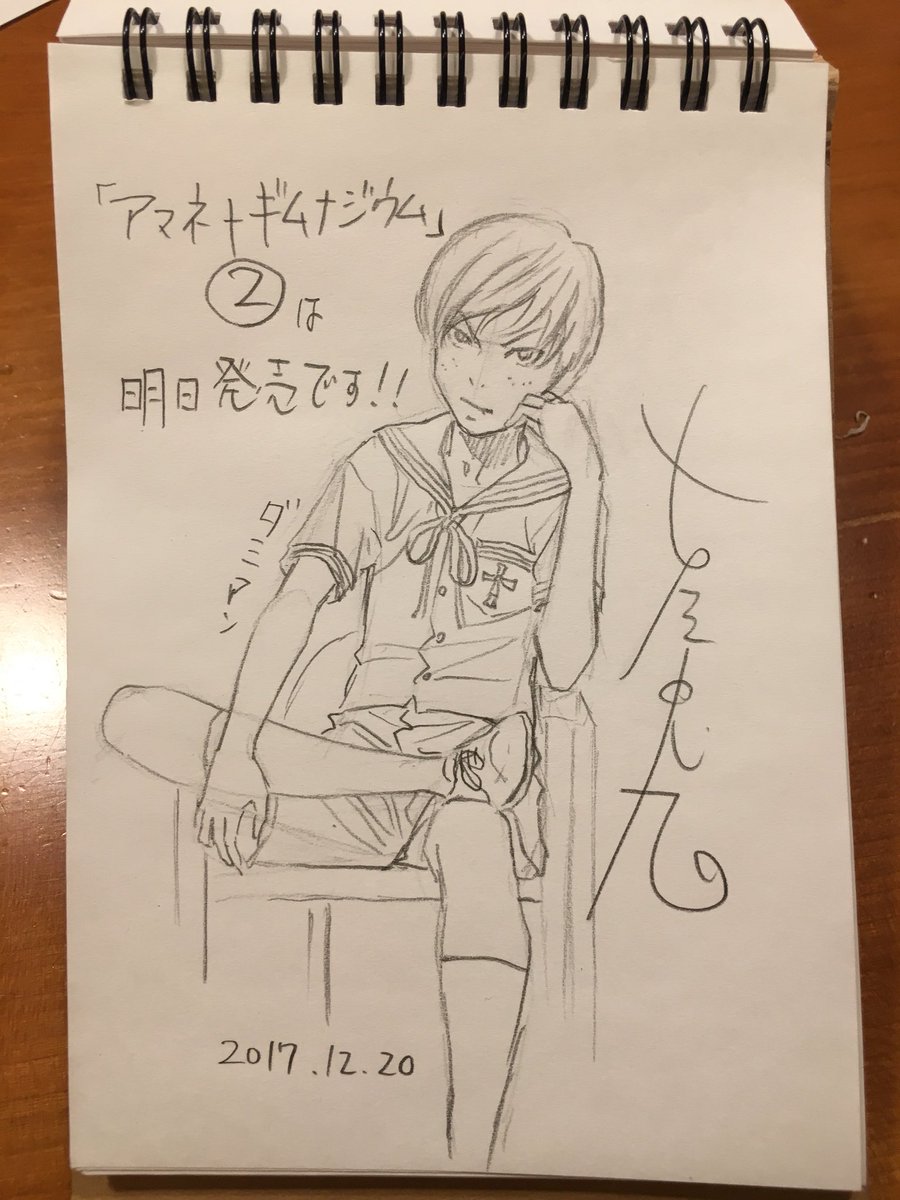 「アマネ†ギムナジウム」
②は
明日発売です!!
ダミアン
2017.12.20